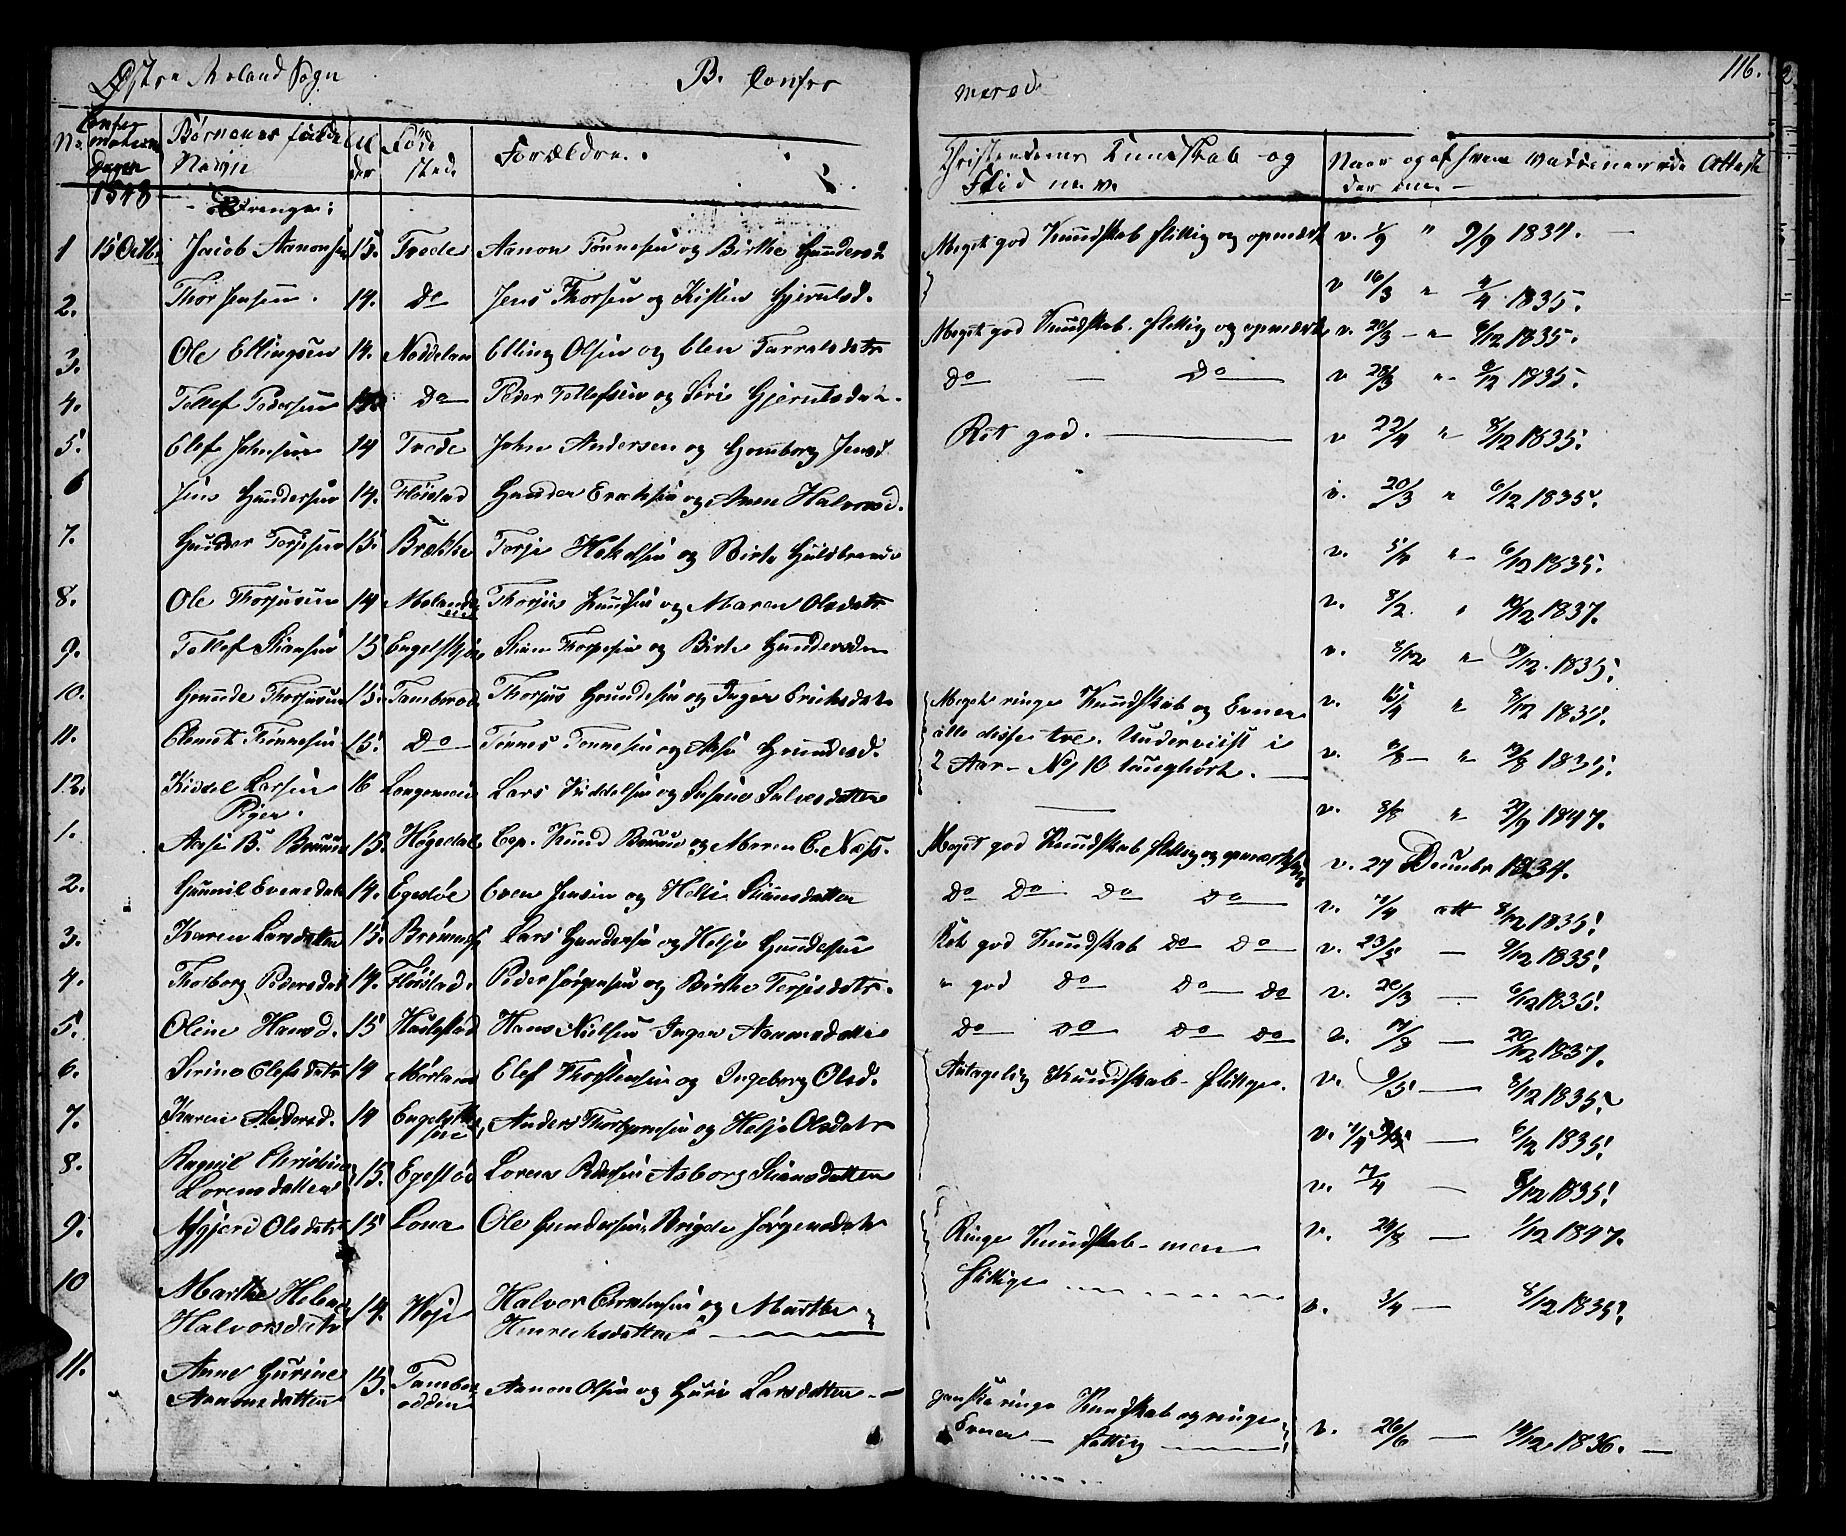 Østre Moland Sogn B. Confir mered. 116.
No. Confir mations Dagen Børnenes fulde Navn Al der Føde sted. Forældre. Christendoms Kundskab og Flid m.v. Naar og af hvem vaccineerede Attest
1848 Drenge:
1 15 Octbr Jacob Aanonsen 15. Trede Aanon Tønnesen og Birthe Gundersd Meget god Kundskab flittig og opmærk v. 1/9 " 9/9 1834.
2. Thor Jensen. 14. Do Jens Thorsen og Kisten Gjerulsd. v 16/3 " 4/4 1835.
3. Ole Ellingsen 14. Neddelan Elling Olsen og Elen Tarralsdatr Meget god Kundskab. flittig og opmærk v. 20/3 " 6/12 1835.
4. Tellef Pedersen Do Peder Tellefsen og Siri Gjerulsdat. Do Do v 28/3 " 6/12 1835.
5. Olef Johnsen 14 Trede John Andersen og Gomborg Jensd Ret god. v 22/4 " 8/12 1835.
6 Jens Gundersen 14. Fløistad Gunder Ericksen og Anen Halvorsd. v. 20/3 " 6/12 1835.
7. Gunder Terjesen 15. Brække Terje Hakelsen og Birte Guldbrands v. " 6/12 1835.
8. Ole Thorjusen 14 Moland Thorjus Knudsen og Maren Olsdatr v. 8/2. " 10/12 1837.
9. Tellef Stiansen 15 Engelskjøn Stian Thorjesen og Birte Gundersdn v. 8/12 " 1835.
10. Grunde Thorjusen 15. Tamberod Thorjus Grundesen og Inger Ericksdat Meget ringe Kundskab og Evner v. 15/4 " 8/12 1835.
11. Clemet Tønnesen 15. Do Tønnes Tønnesen og Aase Grundesd. alle disse tre. Underviist i v. " 1835.
12. Kiddel Larsen 16 Longemein Lars Kiddelsen og Susane Salvesdatter 2 Aar - No 10. tunghørt. v. 8/8 " 1847.
Piger.
1. Aase B. Bruun 15. Høgedal Cap. Knud Bruun og Maren C. Næss. Meget god Kundskab flittig og opmærksom v. 27 Decembr 1834.
2. Gunnil Evensdat 14. Egedøe Even Jensen og Helje Stiansdatter Do Do Do Do v. 7/4 att 8/12 1835.
3. Karen Larsdatter 15. Lars Gundersen og Helje Gundesen Ret god Kundskab Do Do v. 23/5 — 9/12 1835.
4. Thorborg Pedersdat 14. Fløistad. Peder Jørgensen og Birthe Terjesdatr. " god Do Do Do v. 20/3 — 6/12 1835.
5. Oline Hansd. 15 Hastested Hans Nielsen Inger Aanonsdatter Do Do Do Do v. 17/8 — 20/12 1837.
6. Serine Olefsdatr 14 Mørland Elef Thorstensen og Ingeborg Olsd. Antagelig Kundskab - flittige. v. 9/5 — 8/12 1835.
7. Karen Andersd. 14 Engelskjøn Anders Thorbjørnsen og Helje Olsdatr v. 7/4 — 6/12 1835.
8. Ragnil Christine Lorensdatter 15. Egestø Lorens Pedersen Asborg Stiansdatter v. 7/4 — 8/12 1835.
9. Asgjerd Olsdatr 15 Lona Ole Gundersen, Brigde Jørgensdatr Ringe Kundskab - men v. 29/8 — 1/12 1847.
10 Marthe Helene Halvorsdatr 14. Veje Halvor Christensen og Marthe Henrichsdatter flittige v. 3/4 — 8/12 1835.
11. Anne Gurine Aanonsdatter 15. Tamber odden Aanon Olsen og Guri Larsdatter ganske ringe Kundskab og ringe Evner — flittig v. 26/6 — 14/12 1836.